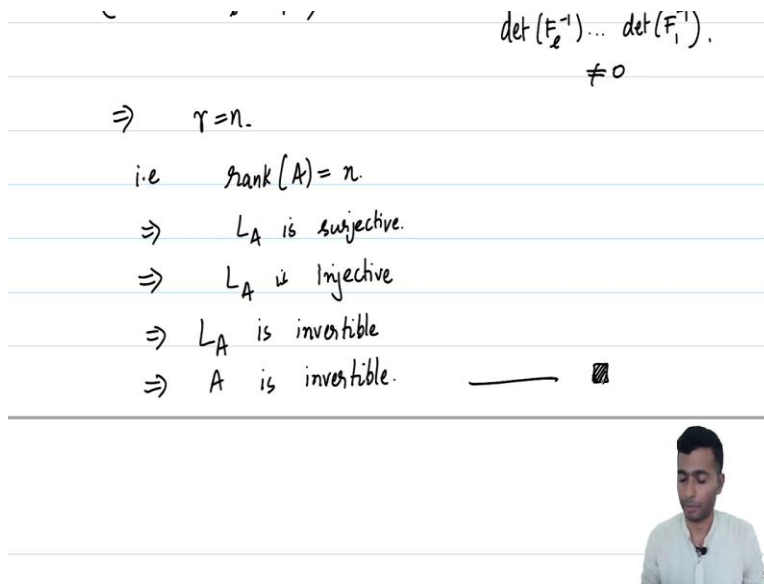 det(F_ℓ⁻¹)... det(F₁⁻¹).
≠0
⇒ r=n.
i.e rank(A)= n.
⇒ L_A is surjective.
⇒ L_A is Injective
⇒ L_A is invertible
⇒ A is invertible.